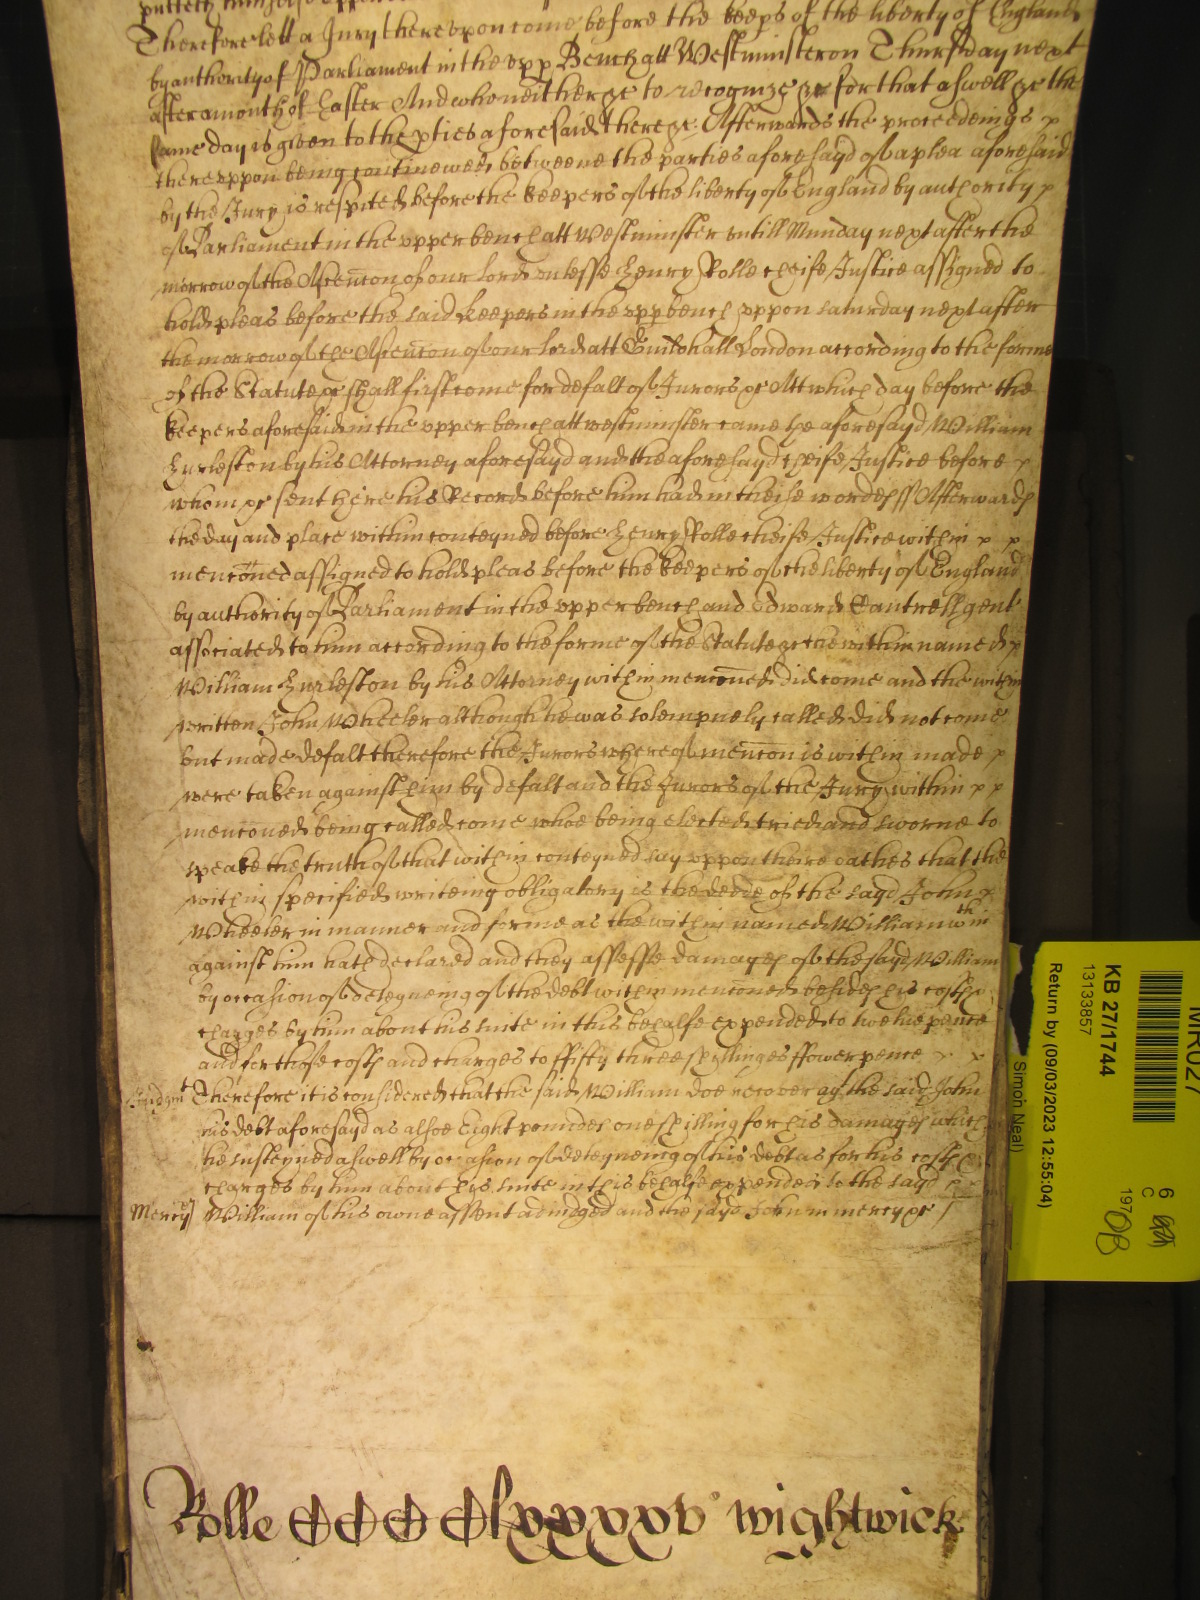 putteth himselfe
Therefore lett a Jury thereupon come before the keeps of the liberty of England
by authority of Parliament in the upp Bench att Westminster on Thursday next
after a month of Easter And who neither &c to recognize &c for that aswell &c the
same day is given to the pties aforesaid there &c. Afterwards the proceedeings
thereuppon being continewed betweene the parties aforesayd of a plea aforesaid
by the Jury is respited before the keepers of the liberty of England by authority
of Parliament in the upper bench att Westminster untill Munday next after the
morrow of the Ascencon of our lord unlesse Henry Rolle cheife Justice assigned to
hold pleas before the said keepers in the upp bench uppon saturday next after
the morrow of the Ascencon of our lord att Guildhall London according to the forme
of the Statute &c shall first come for defalt of Jurors &c Att which day before the
keepers aforesaid in the upper bench att westminster came the aforesayd William
Hurleston by his Attorney aforesayd and the aforesayd cheife Justice before
whom &c sent here his Record before him had in theise wordes ss Afterwardes
the day and place within conteyned before Henry Rolle cheife Justice within
menconed assigned to hold pleas before the keepers of the liberty of England
by authority of Parliament in the upper bench and Edward Cantrell gent
associated to him according to the forme of the Statute &c the within named
William Hurleston by his Attorney within menconed did come and the within
written John Wheeler although he was solempnely called did not come
but made defalt therefore the Jurors whereof mencon is within made
were taken against him by defalt and the Jurors of the Jury within
menconed being called come whoe being elected tried and sworne to
speake the truth of that within conteyned say uppon theire oathes that the
within specified writeing obligatory is the deede of the sayd John
Wheeler in manner and forme as the within named William wthin
against him hath declared and they assesse damages of the sayd William
by occasion of deteyneing of the debt within menconed besides his costes
charges by him about his suite in this behalfe expended to twelve pence
and for those costes and charges to fifty three shillinges ffower pence
Judgmt Therefore it is considered that the said William doe recover agt the said John
his debt aforesayd as alsoe Eight poundes one shilling for his damages which
he susteyned aswell by occasion of deteyneing of his debt as for his costes
charges by him about his suite in this behalfe expended to the sayd
Mercy William of his owne assent adiudged and the sayd John in mercy &c
Rolle wightwick
MR027
KB 27/1744
13133857
Return by (09/03/2023 12:55:04)
Simon Neal)
6
C
197